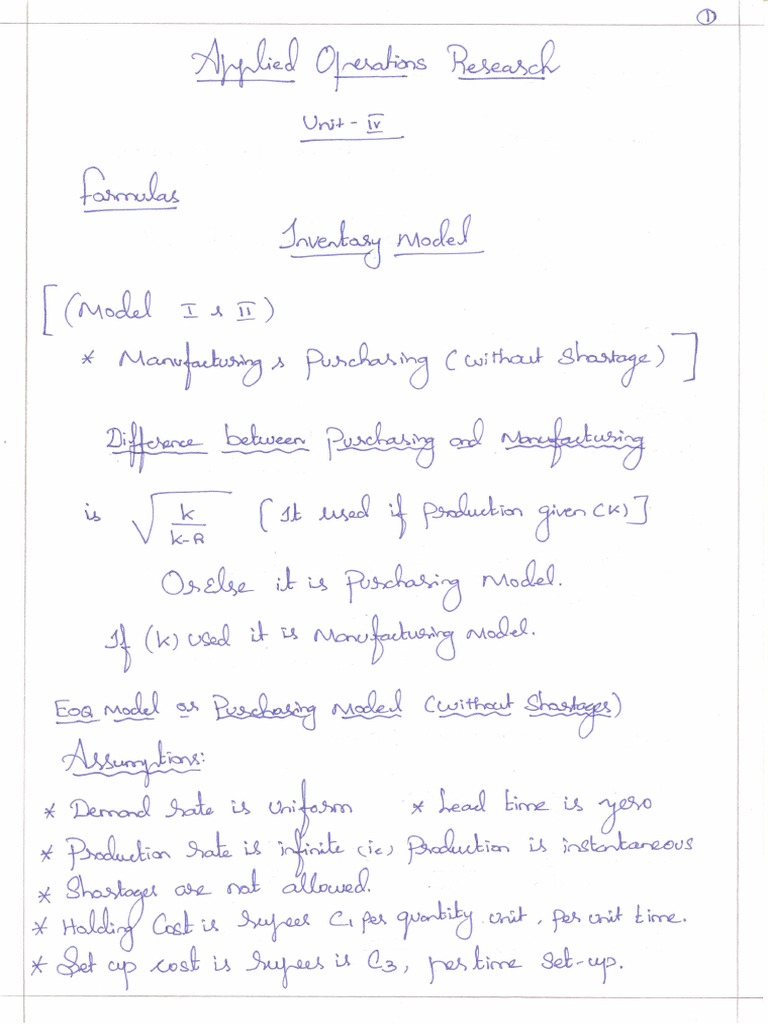 ①
Applied Operations Research
Unit - IV
Formulas
Inventory Model
[(Model I & II)
* Manufacturing & Purchasing (without Shortage)]
Difference between Purchasing and Manufacturing
is √(k/(k-R)) [It used if Production given (k)]
Or Else it is Purchasing Model.
If (k) used it is Manufacturing Model.
EOQ Model or Purchasing Model (without Shortages)
Assumptions:
* Demand rate is Uniform * Lead time is zero
* Production rate is infinite (ie) Production is instantaneous
* Shortages are not allowed.
* Holding Cost is rupees C1 per quantity unit, per unit time.
* Set up cost is rupees is C3, per time set-up.